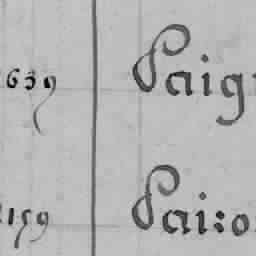 639 Paig
1159 Pai:o